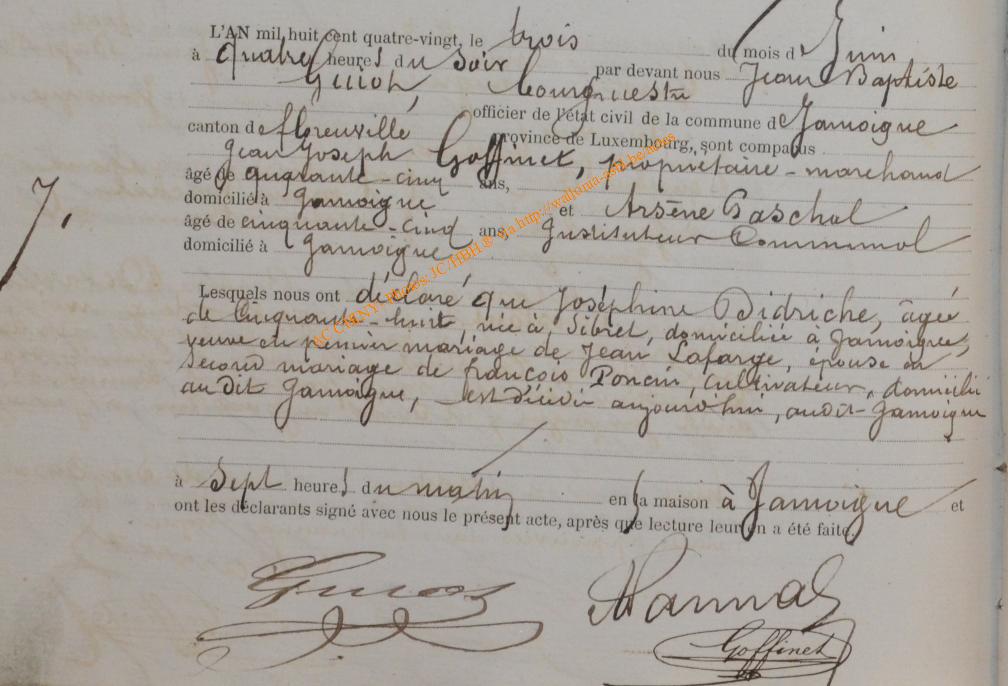 L'AN mil huit cent quatre-vingt, le trois du mois de Juin
à quatre heures du soir par devant nous Jean Baptiste
Guiot, Bourgmestre
officier de l'état civil de la commune de Jamoigne
canton de florenville province de Luxembourg, sont comparus
Jean Joseph Goffinet, propriétaire-marchand
âgé de quarante-cinq ans,
domicilié à Jamoigne et Arsène Paschal
âgé de cinquante-cinq ans, Instituteur Communal
domicilié à Jamoigne
Lesquels nous ont déclaré que Joséphine Didriche, âgée
de Cinquante-huit, née à Sibret, domiciliée à Jamoigne,
veuve en premier mariage de Jean Lafarge, épouse en
second mariage de françois Poncin, Cultivateur, domicilié
au Dit Jamoigne, est décédée aujourd'hui, audit-Jamoigne
à sept heures du matin en la maison à Jamoigne et
ont les déclarants signé avec nous le présent acte, après que lecture leur en a été faite.
7.
Guiot
Goffinet